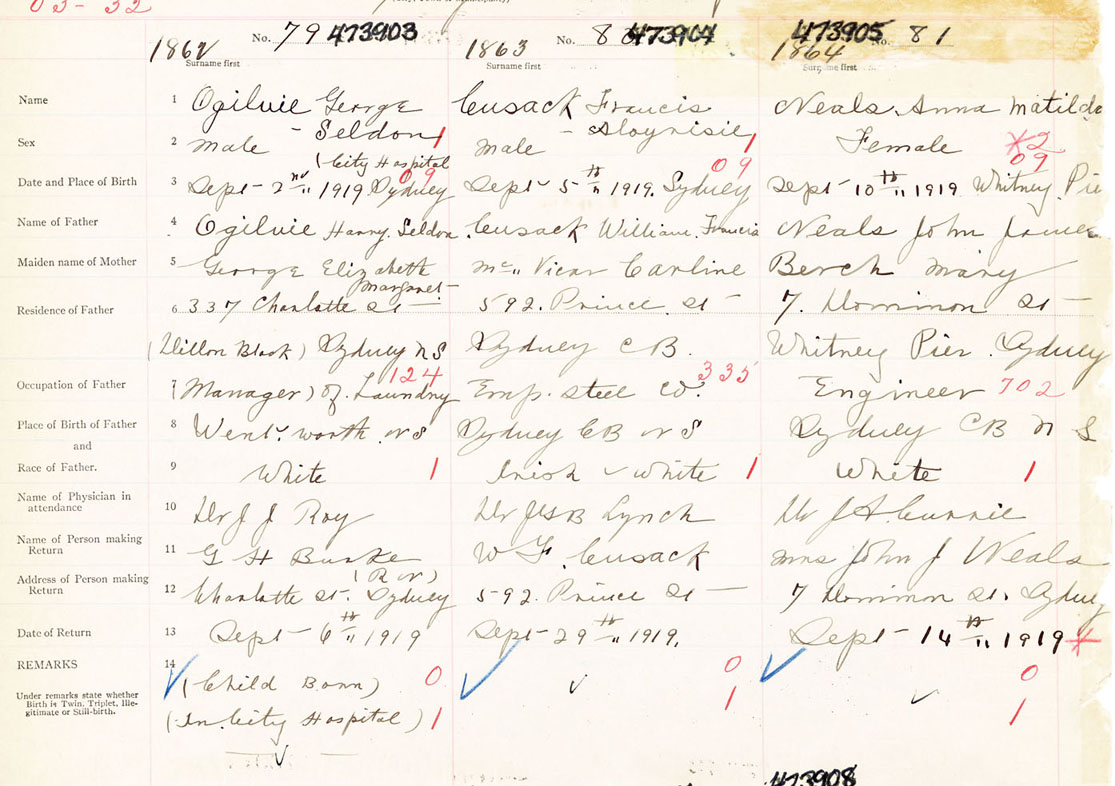 03-32
No. 79 473903
No. 80 473904
473905 No. 81
1862
1863
1864
Surname first
Surname first
Surname first
Name 1 Ogilvie George Cusack Francis Neals Anna Matilda
- Seldon 1 - Aloyisie 1
Sex 2 Male Male Female X2
(City Hospital
09 09 09
Date and Place of Birth 3 Sept 2nd 1919 Sydney Sept 5th 1919. Sydney Sept 10th 1919 Whitney Pie
Name of Father 4 Ogilvie Harry. Seldon Cusack William. Francis Neals John James
Maiden name of Mother 5 George Elizabeth Mc Vicar Carline Berch Mary
Margaret
Residence of Father 6 337 Charlotte St 592. Prince St 7. Dominion St
(Dillon Block) Sydney N S Sydney C B. Whitney Pier. Sydney
124 335
Occupation of Father 7 (Manager) of Laundry Emp. steel Co. Engineer 702
Place of Birth of Father 8 Went. worth N S Sydney CB N S Sydney CB N S
and
Race of Father. 9 White 1 Irish - white 1 White 1
Name of Physician in
attendance 10 Dr J J Roy Dr JGB Lynch Dr J A. Currie
Name of Person making
Return 11 G H Burke W F. Cusack Mrs John J Neals
(R N)
Address of Person making
Return 12 Charlotte St. Sydney 592. Prince St 7 Dominion St. Sydney
Date of Return 13 Sept 6th 1919 Sept 29th 1919. Sept 14th 1919 X
REMARKS 14 (Child Born) 0 0 0
Under remarks state whether
Birth is Twin, Triplet, Ille-
gitimate or Still-birth.
(In. City Hospital) 1 1 1
473908